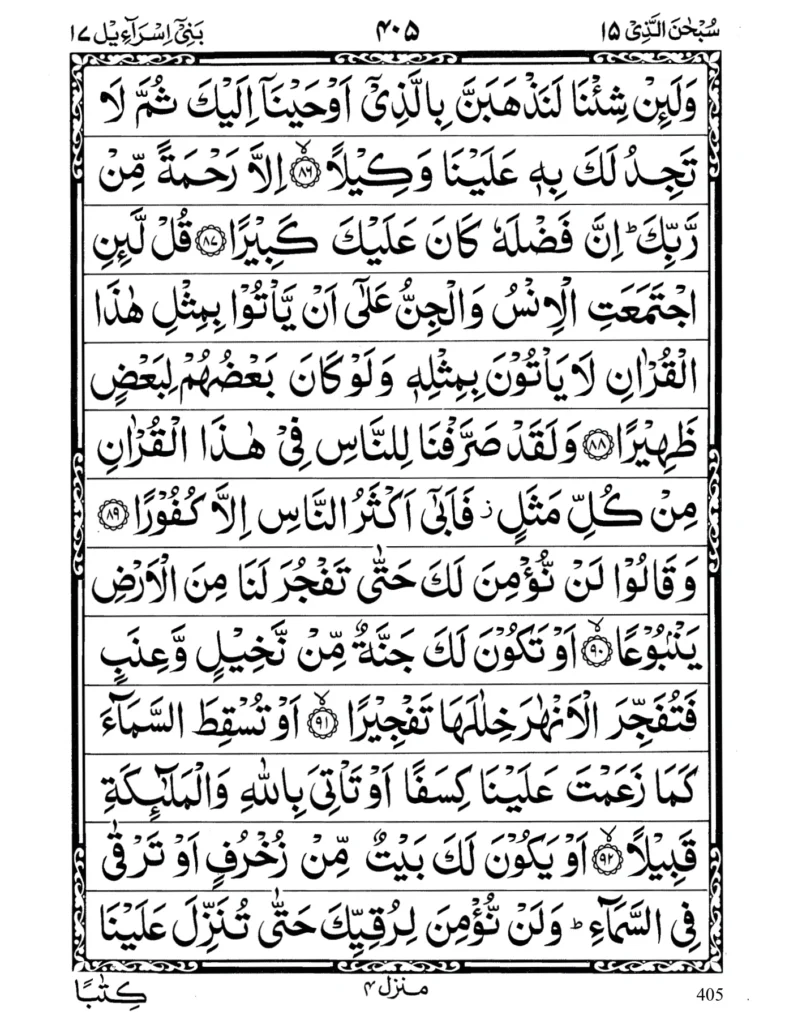 سُبْحٰنَ الَّذِیْۤ ۱۵
۴۰۵
بَنِیْۤ اِسْرَآءِیْل ۱۷
وَلَئِنْ شِئْنَا لَنَذْهَبَنَّ بِالَّذِیْۤ اَوْحَیْنَاۤ اِلَیْكَ ثُمَّ لَا
تَجِدُ لَكَ بِهٖ عَلَیْنَا وَكِیْلًا ۙ﴿۸۶﴾ اِلَّا رَحْمَةً مِّنْ
رَّبِّكَ ؕ اِنَّ فَضْلَهٗ كَانَ عَلَیْكَ كَبِیْرًا ﴿۸۷﴾ قُلْ لَّئِنِ
اجْتَمَعَتِ الْاِنْسُ وَالْجِنُّ عَلٰۤی اَنْ یَّاْتُوْا بِمِثْلِ هٰذَا
الْقُرْاٰنِ لَا یَاْتُوْنَ بِمِثْلِهٖ وَلَوْ كَانَ بَعْضُهُمْ لِبَعْضٍ
ظَهِیْرًا ﴿۸۸﴾ وَلَقَدْ صَرَّفْنَا لِلنَّاسِ فِیْ هٰذَا الْقُرْاٰنِ
مِنْ كُلِّ مَثَلٍ ؗ فَاَبٰۤی اَكْثَرُ النَّاسِ اِلَّا كُفُوْرًا ﴿۸۹﴾
وَقَالُوْا لَنْ نُّؤْمِنَ لَكَ حَتّٰی تَفْجُرَ لَنَا مِنَ الْاَرْضِ
یَنْۢبُوْعًا ۙ﴿۹۰﴾ اَوْ تَكُوْنَ لَكَ جَنَّةٌ مِّنْ نَّخِیْلٍ وَّعِنَبٍ
فَتُفَجِّرَ الْاَنْهٰرَ خِلٰلَهَا تَفْجِیْرًا ۙ﴿۹۱﴾ اَوْ تُسْقِطَ السَّمَآءَ
كَمَا زَعَمْتَ عَلَیْنَا كِسَفًا اَوْ تَاْتِیَ بِاللّٰهِ وَالْمَلٰٓئِكَةِ
قَبِیْلًا ۙ﴿۹۲﴾ اَوْ یَكُوْنَ لَكَ بَیْتٌ مِّنْ زُخْرُفٍ اَوْ تَرْقٰی
فِی السَّمَآءِ ؕ وَلَنْ نُّؤْمِنَ لِرُقِیِّكَ حَتّٰی تُنَزِّلَ عَلَیْنَا
كِتٰبًا
منزل ۴
405